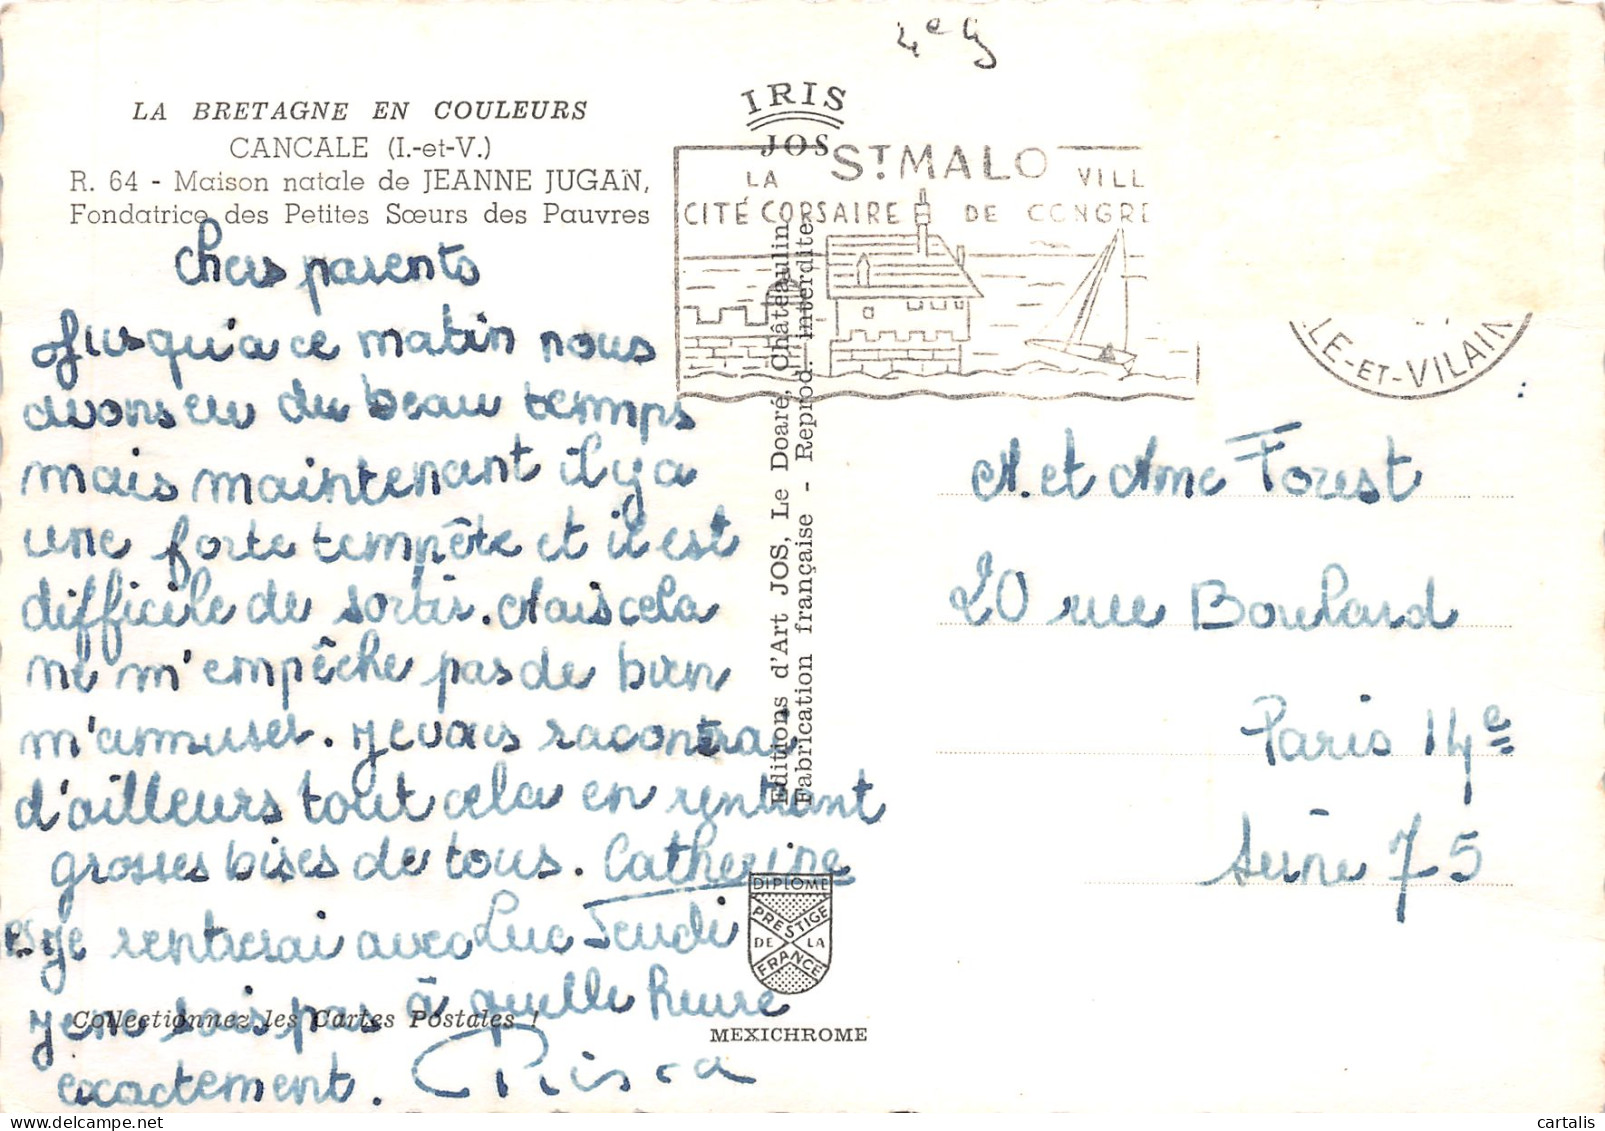 4e G
LA BRETAGNE EN COULEURS
CANCALE (I.-et-V.)
R. 64 - Maison natale de JEANNE JUGAN,
Fondatrice des Petites Sœurs des Pauvres
Chers parents
Jusqu'a ce matin nous
avons eu du beau temps
mais maintenant il y a
une forte tempête et il est
difficile de sortir. Mais cela
ne m'empêche pas de bien
m'amuser. Je vais racontrai
d'ailleurs tout cela en rentrant
grosses bises de tous. Catherine
PS je rentrerai avec Luc Jeudi
je ne sais pas à quelle heure
exactement.
Collectionnez les Cartes Postales !
IRIS
JOS
ST MALO
LA VILL
CITÉ CORSAIRE DE CONGRE
LE-ET-VILAIN
Editions d'Art JOS, Le Doaré, Châteaulin
Fabrication française - Reprod. interdite
DIPLOME
PRESTIGE
DE LA
FRANCE
MEXICHROME
M. et Mme Forest
20 rue Boulard
Paris 14e
Seine 75
cartalis
www.delcampe.net